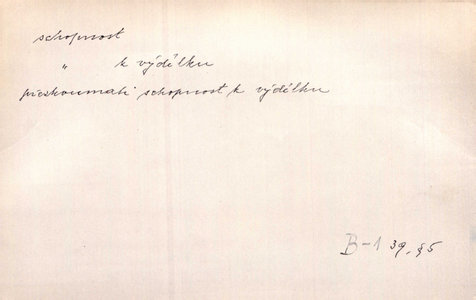 schopnost
" k výdělku
přezkoumati schopnost k výdělku
B-1 39, §5